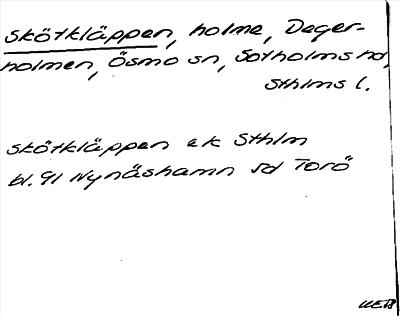 Skötkläppen, holme, Dager-
holmen, Ösmo sn, Sotholms hd,
Sthlms l.
Skötkläppen ek Sthlm
bl. 91 Nynäshamn Sd Torö